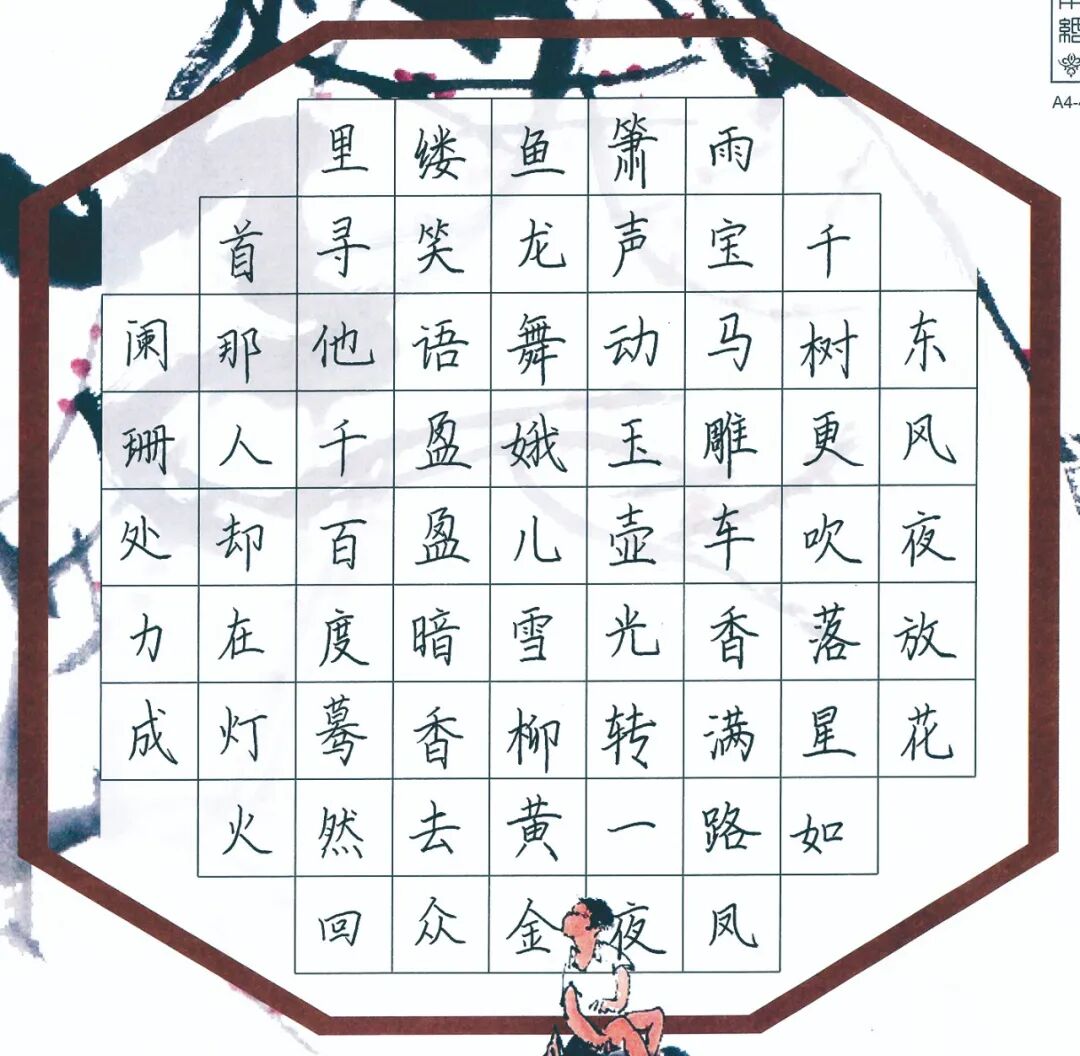 东风夜放花
千树更吹落星如
雨宝马雕车香满路凤
箫声动玉壶光转一夜
鱼龙舞娥儿雪柳黄金
缕笑语盈盈暗香去众
里寻他千百度蓦然回
首那人却在灯火
阑珊处力成